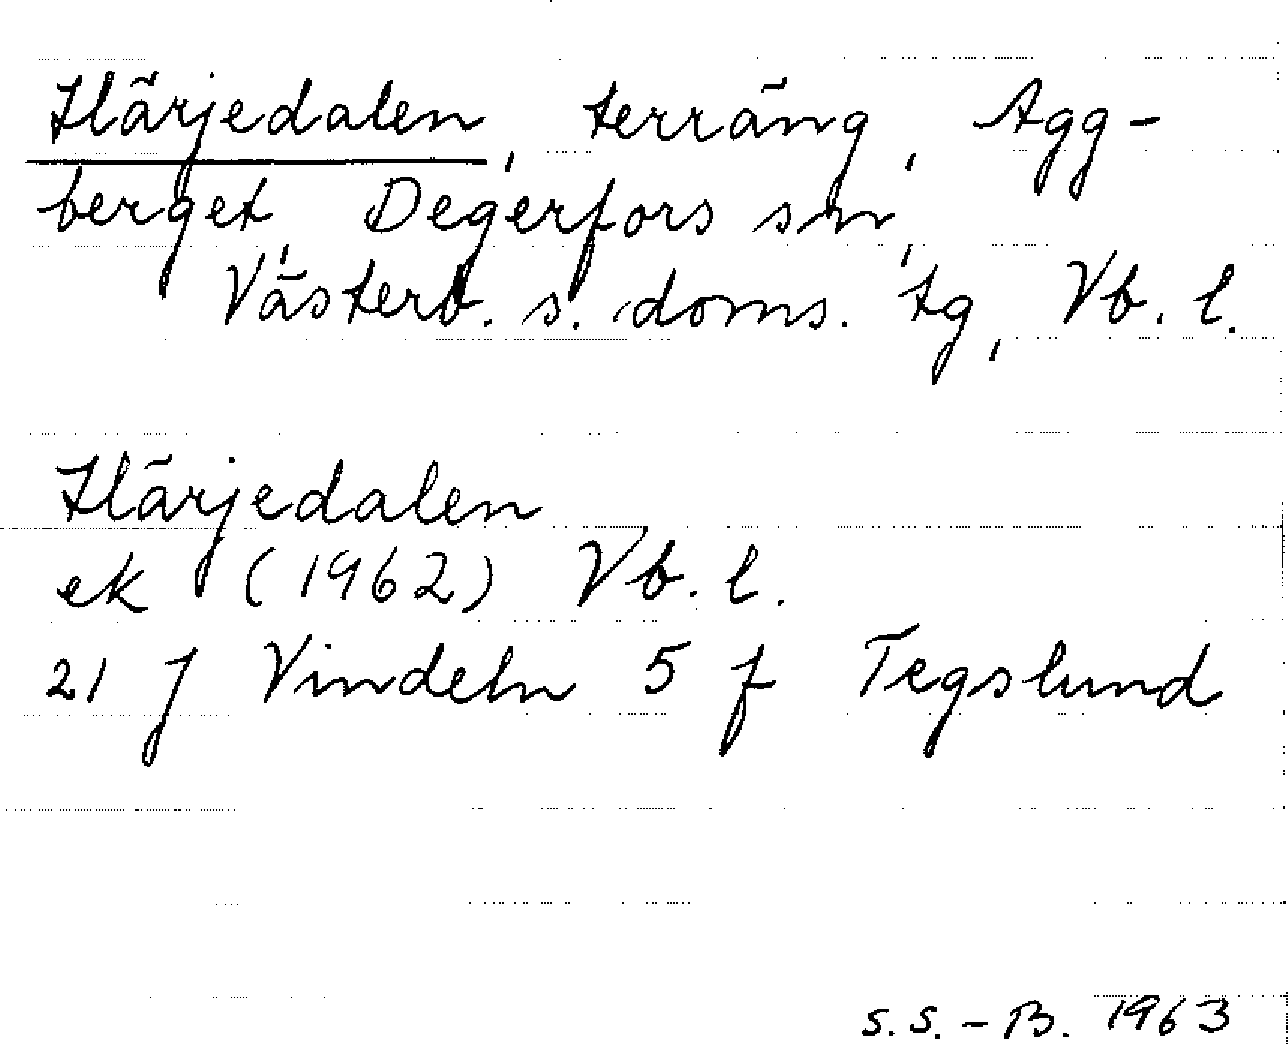 Härjedalen, terräng, Agg-
berget, Degerfors sn,
Västerb. s. doms. tg, Vb. l.
Härjedalen
ek (1962) Vb. l.
21 J Vindeln 5 f Tegslund
S.S.-B. 1963